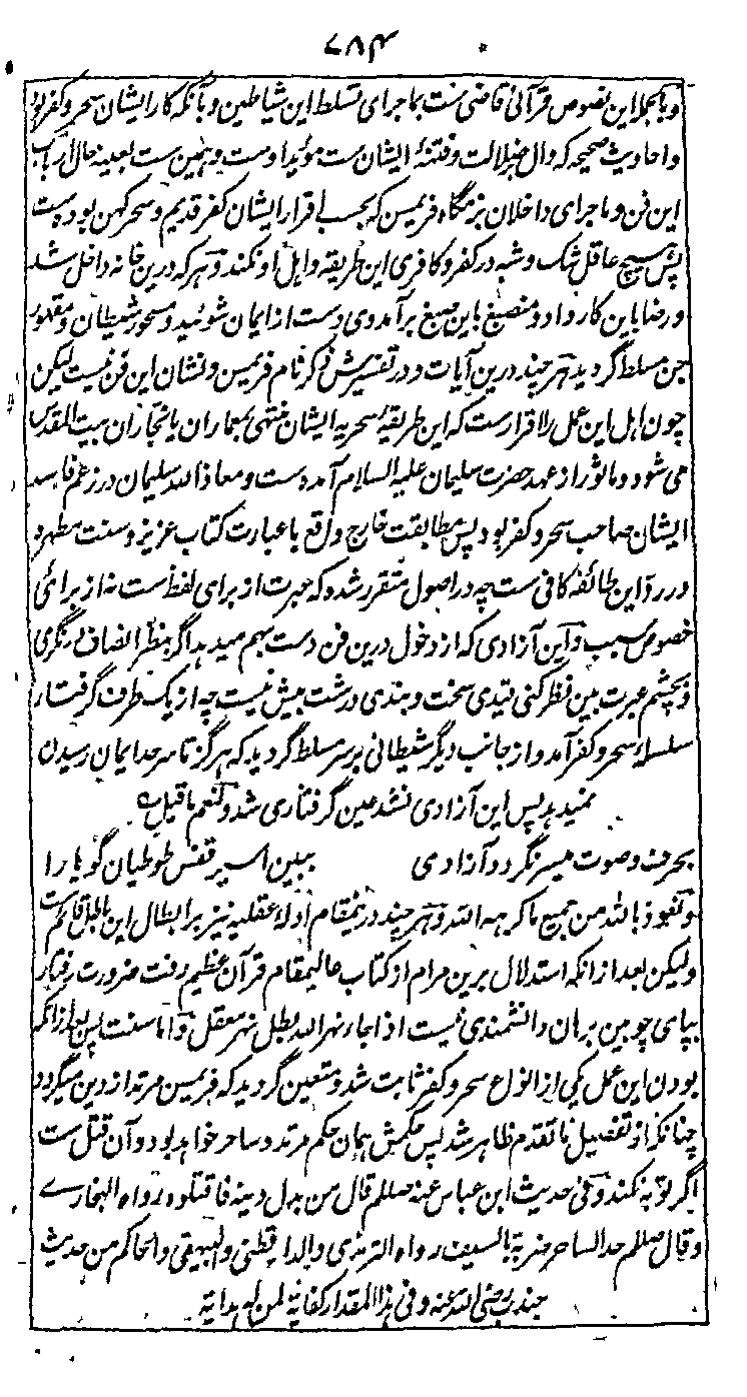 ۷۸۴
و بالجمله این نصوص قرآنی قاضی ست بماجرای تسلط این شیاطین و بآنکه کار ایشان سحر و کفر بود
و احادیث صحیحه که دال بر ضلالت و فتنهٔ ایشان ست مؤید اوست و همین ست بعینه حال ارباب
این فن و ماجرای داخلان بزمگاه فریمسن که بحسب اقرار ایشان کفر قدیم و سحر کهن بوده ست
پس هیچ عاقل شک و شبه در کفر و کافری این طریقه و اهل او نکند و هر که درین خانه داخل شد
و رضا باین کار داد و منصبغ باین صبغ برآمد وی دست از ایمان شوئید و مسحور شیطان و مقهور
جن مسلط گردید هر چند درین آیات و در تفسیرش ذکر نام فریمسن و نشان این فن نیست لیکن
چون اهل این عمل را اقرارست که این طریقهٔ سحریه ایشان منتهی بمعماران یا نجاران بیت المقدس
می شود و ماثور از عهد حضرت سلیمان علیه السلام آمده ست و معاذ الله سلیمان در زعم فاسد
ایشان صاحب سحر و کفر بود پس مطابقت خارج و واقع با عبارت کتاب عزیز و سنت مطهره
در رد این طائفه کافی ست چه در اصول متقرر شده که عبرت از برای لفظ ست نه از برای
خصوص سبب و این آزادی که از دخول درین فن دست بهم میدهد اگر بنظر انصاف بنگری
و بچشم عبرت بین نظر کنی قیدی سخت و بندی درشت بیش نیست چه از یک طرف گرفتار
سلسلهٔ سحر و کفر آمد و از جانب دیگر شیطانی بر سر مسلط گردید که هرگز تا سرحد ایمان رسیدن
نمیدهد پس این آزادی نشد عین گرفتاری شد و لنعم ما قیل ے
بحرف و صوت میسر نگردد آزادی ببین اسیر قفس طوطیان گویا را
و نعوذ بالله من جمیع ما کرهه الله و هر چند درینمقام ادلهٔ عقلیه نیز بر ابطال این باطل قائم ست
ولیکن بعد ازانکه استدلال برین مرام از کتاب عالیمقام قرآن عظیم رفت ضرورت رفتار
بپای چوبین برهان دانشمندی نیست اذا جاء نهر الله بطل نهر معقل و اما سنت پس بعد ازانکه
بودن این عمل یکی از انواع سحر و کفر ثابت شد و متعین گردید که فریمسن مرتد از دین میگردد
چنانکه از تفصیل ما تقدم ظاهر شد پس حکمش همان حکم مرتد و ساحر خواهد بود و آن قتل ست
اگر توبه نکند و فی حدیث ابن عباس عنه صللم قال من بدل دینه فاقتلوه رواه البخاری
و قال صللم حد الساحر ضربة بالسیف رواه الترمذی والدارقطنی والبیهقی والحاکم من حدیث
جندب رضی الله عنه و فی هذا المقدار کفایة لمن له هدایة